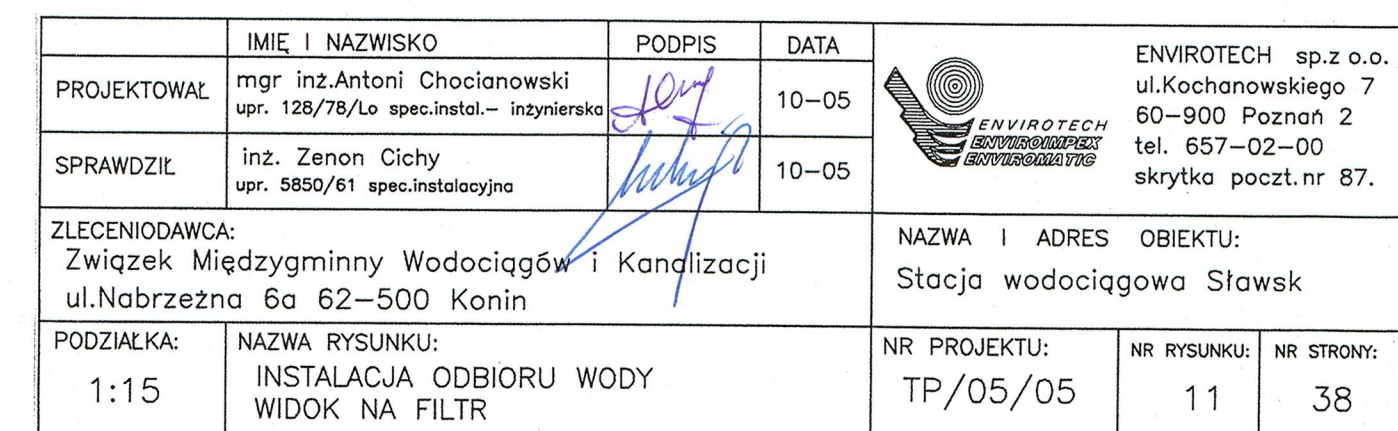 IMIĘ I NAZWISKO PODPIS DATA
PROJEKTOWAŁ mgr inż.Antoni Chocianowski 10-05
upr. 128/78/Lo spec.instal.- inżynierska
SPRAWDZIŁ inż. Zenon Cichy 10-05
upr. 5850/61 spec.instalacyjna
ENVIROTECH
ENVIROIMPEX
ENVIROMATIC
ENVIROTECH sp.z o.o.
ul.Kochanowskiego 7
60-900 Poznań 2
tel. 657-02-00
skrytka poczt.nr 87.
ZLECENIODAWCA:
Związek Międzygminny Wodociągów i Kanalizacji
ul.Nabrzeżna 6a 62-500 Konin
NAZWA I ADRES OBIEKTU:
Stacja wodociągowa Sławsk
PODZIAŁKA:
1:15
NAZWA RYSUNKU:
INSTALACJA ODBIORU WODY
WIDOK NA FILTR
NR PROJEKTU:
TP/05/05
NR RYSUNKU:
11
NR STRONY:
38